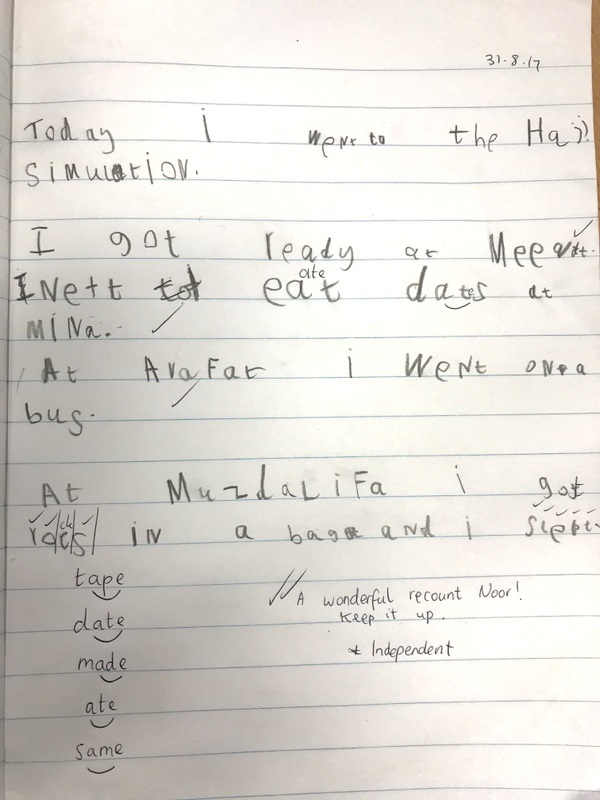 31.8.17
Today i went to the Hajj
simulation.
I got ready at Meeqat.
I Nett eat ate dates at
MiNa.
At AraFat i WeNt oNa a
bus.
At MuzdaLiFa i got
rocks iN a bag and i slept.
tape
date
made
ate
same
A wonderful recount Noor!
Keep it up.
* Independent